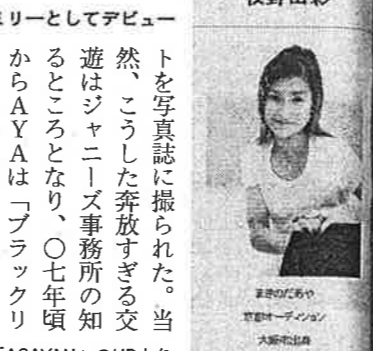 ミリーとしてデビュー
トを写真誌に撮られた。当
然、こうした奔放すぎる交
遊はジャニーズ事務所の知
るところとなり、〇七年頃
からAYAは「ブラックリ
まきのだあや
京都オーディション
大阪府出身